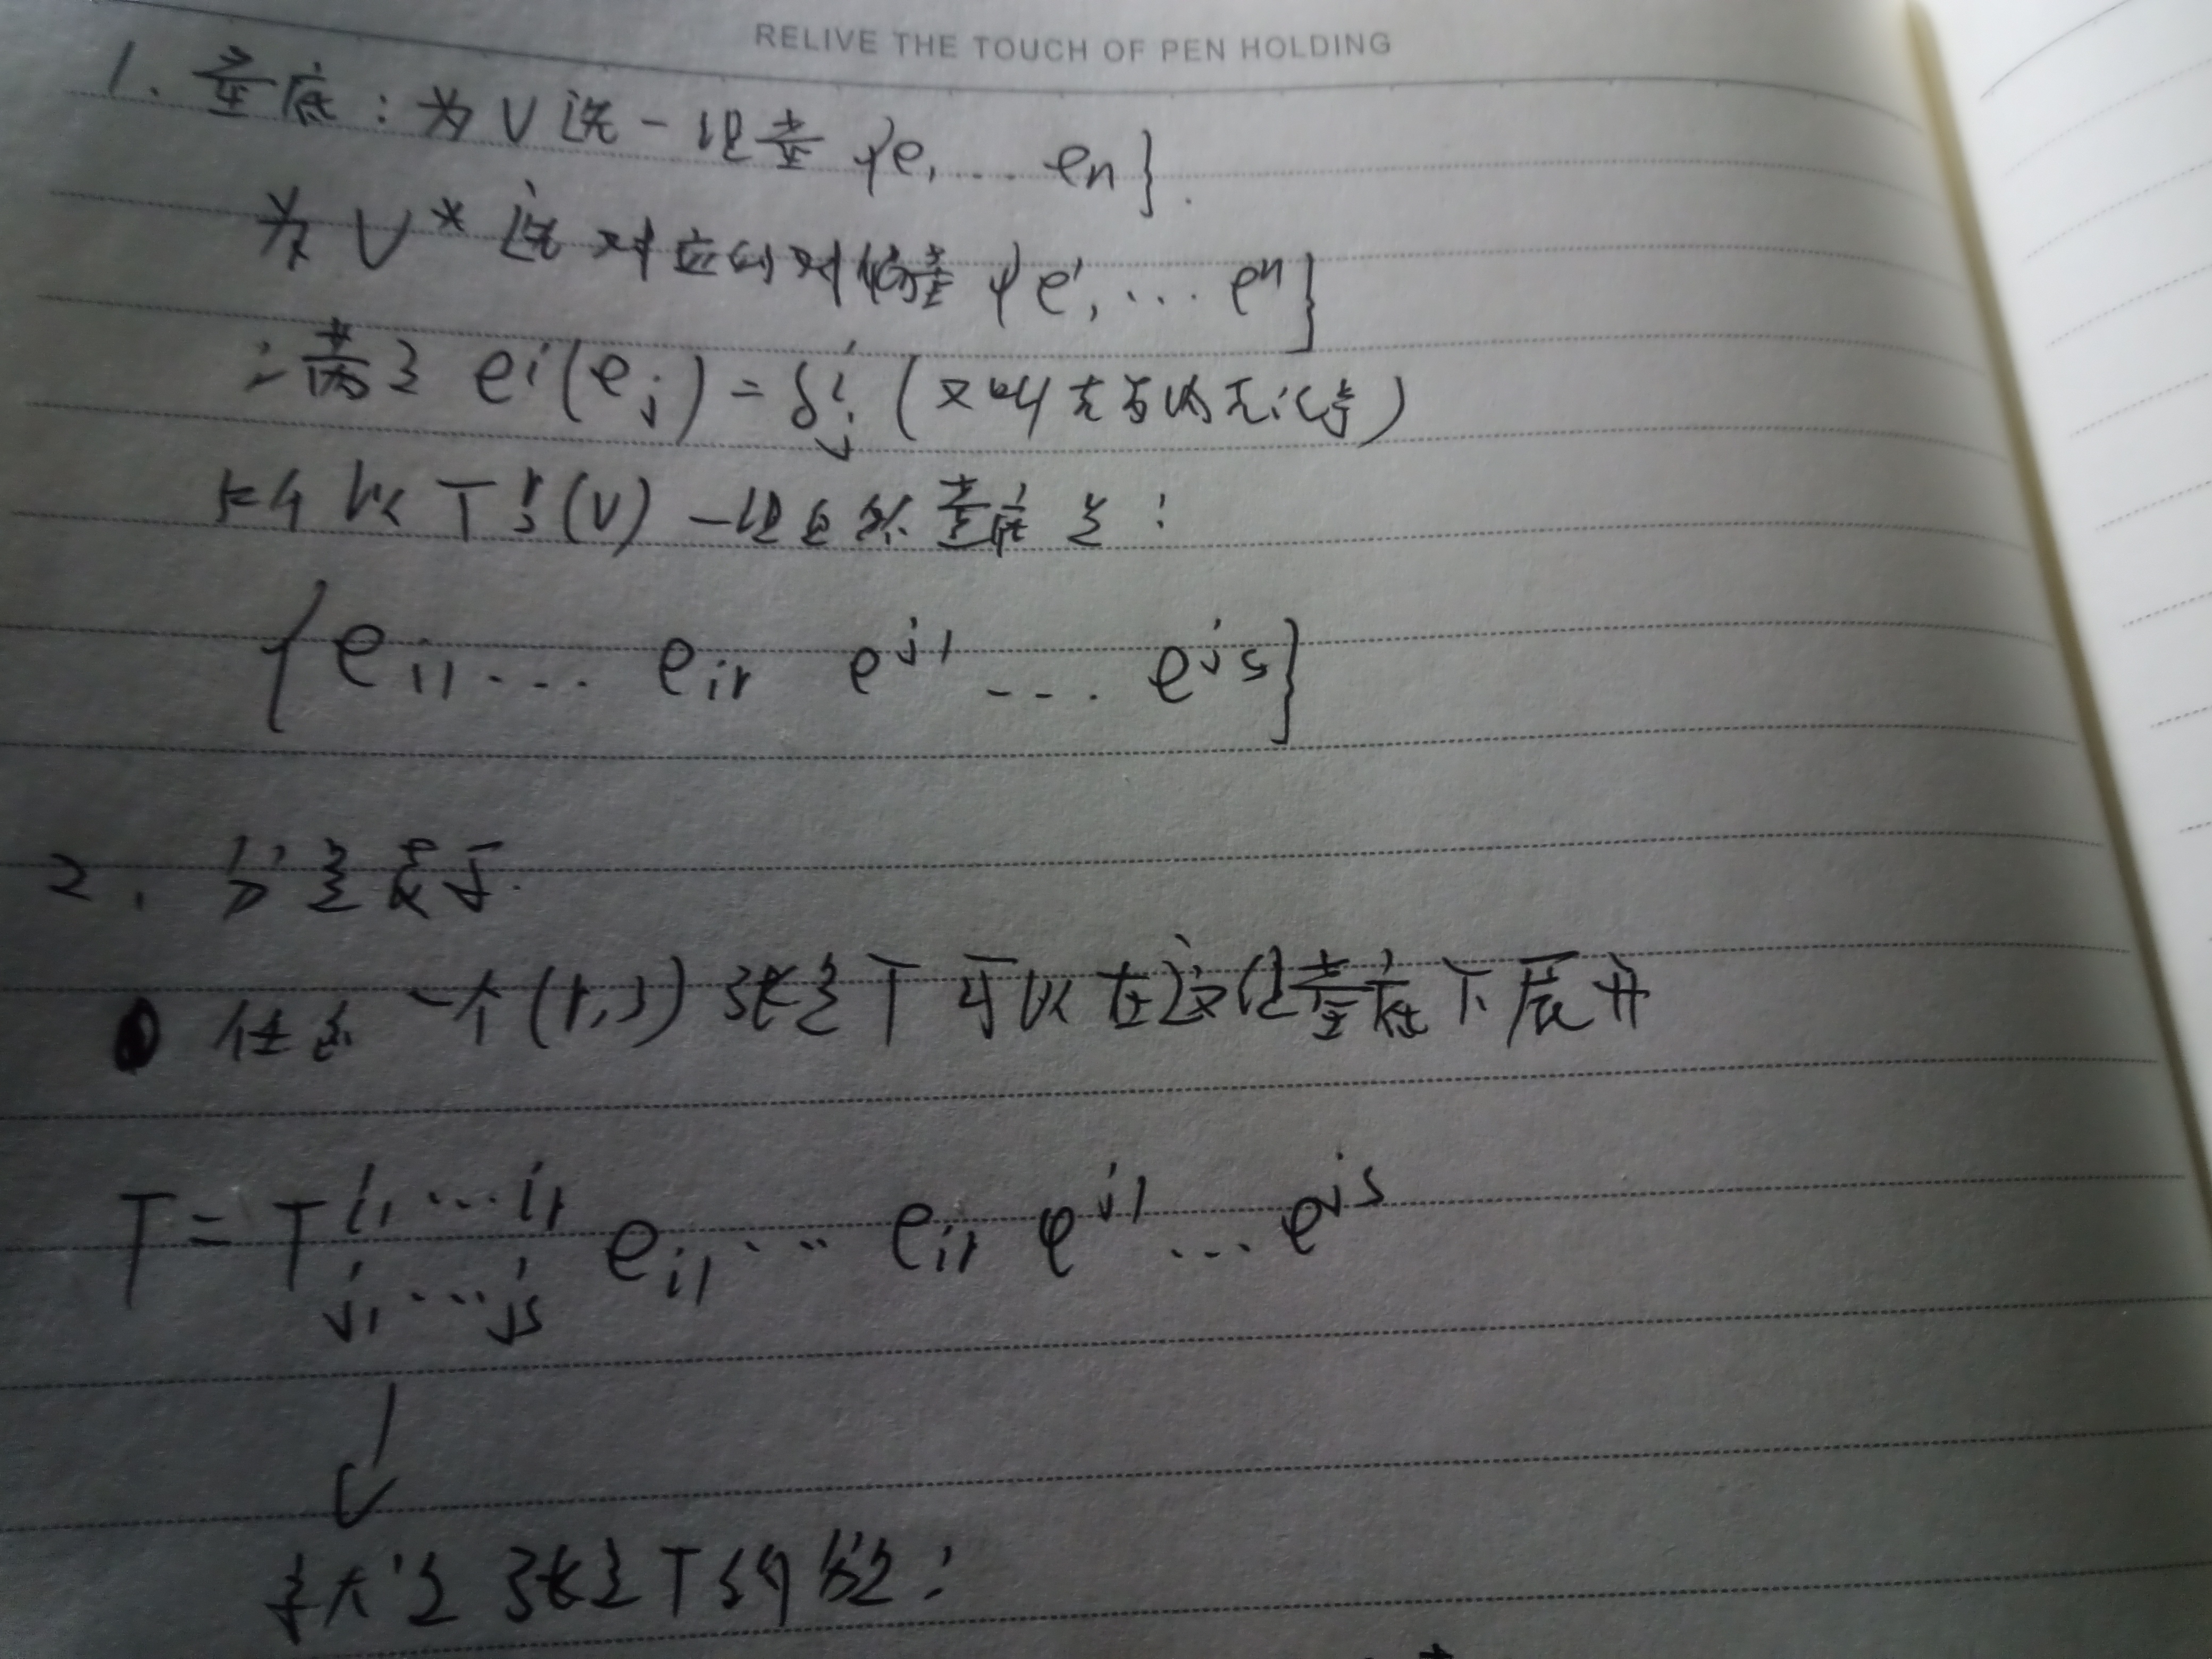 RELIVE THE TOUCH OF PEN HOLDING
1. 基底：为V选一组基{e₁...eₙ}.
为V*选对应的对偶基{e¹,...eⁿ}
满足 eⁱ(eⱼ)=δⁱⱼ (又叫克罗内克记号)
所以Tʳₛ(V)一组自然基底是：
{e_{i1}... e_{ir} e^{j1}... e^{js}}
2. 分量表示.
任意一个(r,s)张量T可以在这组基底下展开
T=T^{i₁...i_r}_{j₁...j_s} e_{i1}... e_{ir} e^{j1}... e^{js}
张量T的